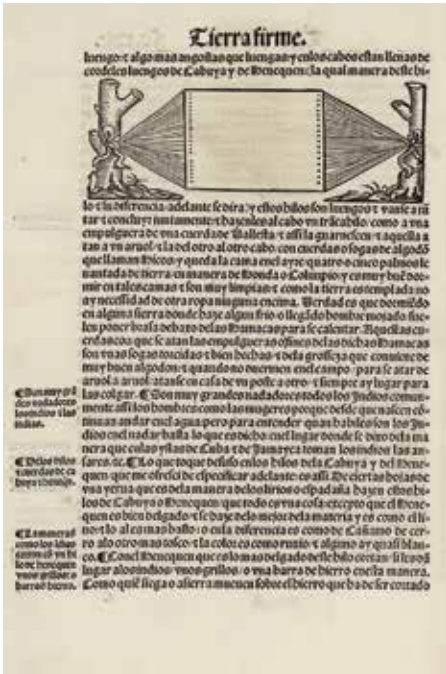 Tierra firme.
luengo: t algo mas angostas que luengas: y enlos cabos estan llenas de
cordeles luengos de Cabuya y de Henequen: la qual manera deste hi-
lo t su diferencia adelante se dira: y estos hilos son luengos t vanse a jũ
tar t concluyr juntamente: t hazenles al cabo vn trãcahilo: como a vna
empulguera de vna cuerda de Ballesta: t assi la guarnescen: t aquella a
tan a vn aruol: t la del otro al otro cabo: con cuerdas o sogas de algodõ
que llaman Hicos: y queda la cama enel ayre quatro o cinco palmos le
uantada de tierra: en manera de Honda o Columpio: y es muy buẽ dor
mir en tales camas: t son muy limpias: t como la tierra es templada no
ay necessidad de otra ropa ninguna encima. Verdad es que dormiẽdo
en alguna sierra donde haze algun frio: o llegãdo hombre mojado: sue
len poner brasa debaxo delas Hamacas para se calentar. Aquellas cu-
erdas con que se atan las empulgueras o fines delas dichas Hamacas
son vnas sogas torcidas t bien hechas: t dela grosseza que conuiene de
muy buen algodon: t quando no duermen enel campo: para se atar de
aruol a arul: atanse en casa de vn poste a otro: t siempre ay lugar para
las colgar. ¶ Son muy grandes nadadores todos los Indios comun-
mente assi los hombres como las mugeres porque desde que nascen cõ
tinuan andar enel agua: pero para entender quan habiles son los In-
dios enel nadar basta lo que es dicho: enel lugar donde se dixo dela ma
nera que enlas yslas de Cuba t de Jamayca toman los indios las an-
sares. tc. ¶ Lo que toque de suso enlos hilos dela Cabuya y del Hene-
quen: que me ofreci de especificar adelante: es assi. De ciertas hojas de
vna yerua: que es dela manera delos lirios o espadaña hazen estos hi-
los de Cabuya o Henequen: que todo es vna cosa: excepto que el Hene
quen es bien delgado: t se haze delo mejor dela materia: y es como el li-
no: t lo al es mas basto: o enla diferencia es como de Cañamo de cer-
ro alo otro mas tosco: t la color es como ruuio: t alguno ay quasi blan-
co. ¶ Con el Henequen que es lo mas delgado deste hilo cortan: si les dã
lugar alos indios: vnos grillos: o vna barra de hierro enesta manera.
Como quiẽ siega o assierra mueuen sobre el hierro que ha de ser cortado
¶ Son muy grã
des nadadores
los indios t las
indias.
¶ Delos hilos
t cuerdas de ca
buya t heneqẽ.
¶ La manera d
como los indios
cortan cõ vn hi
lo de henequen
vnos grillos: o
barra d hierro.